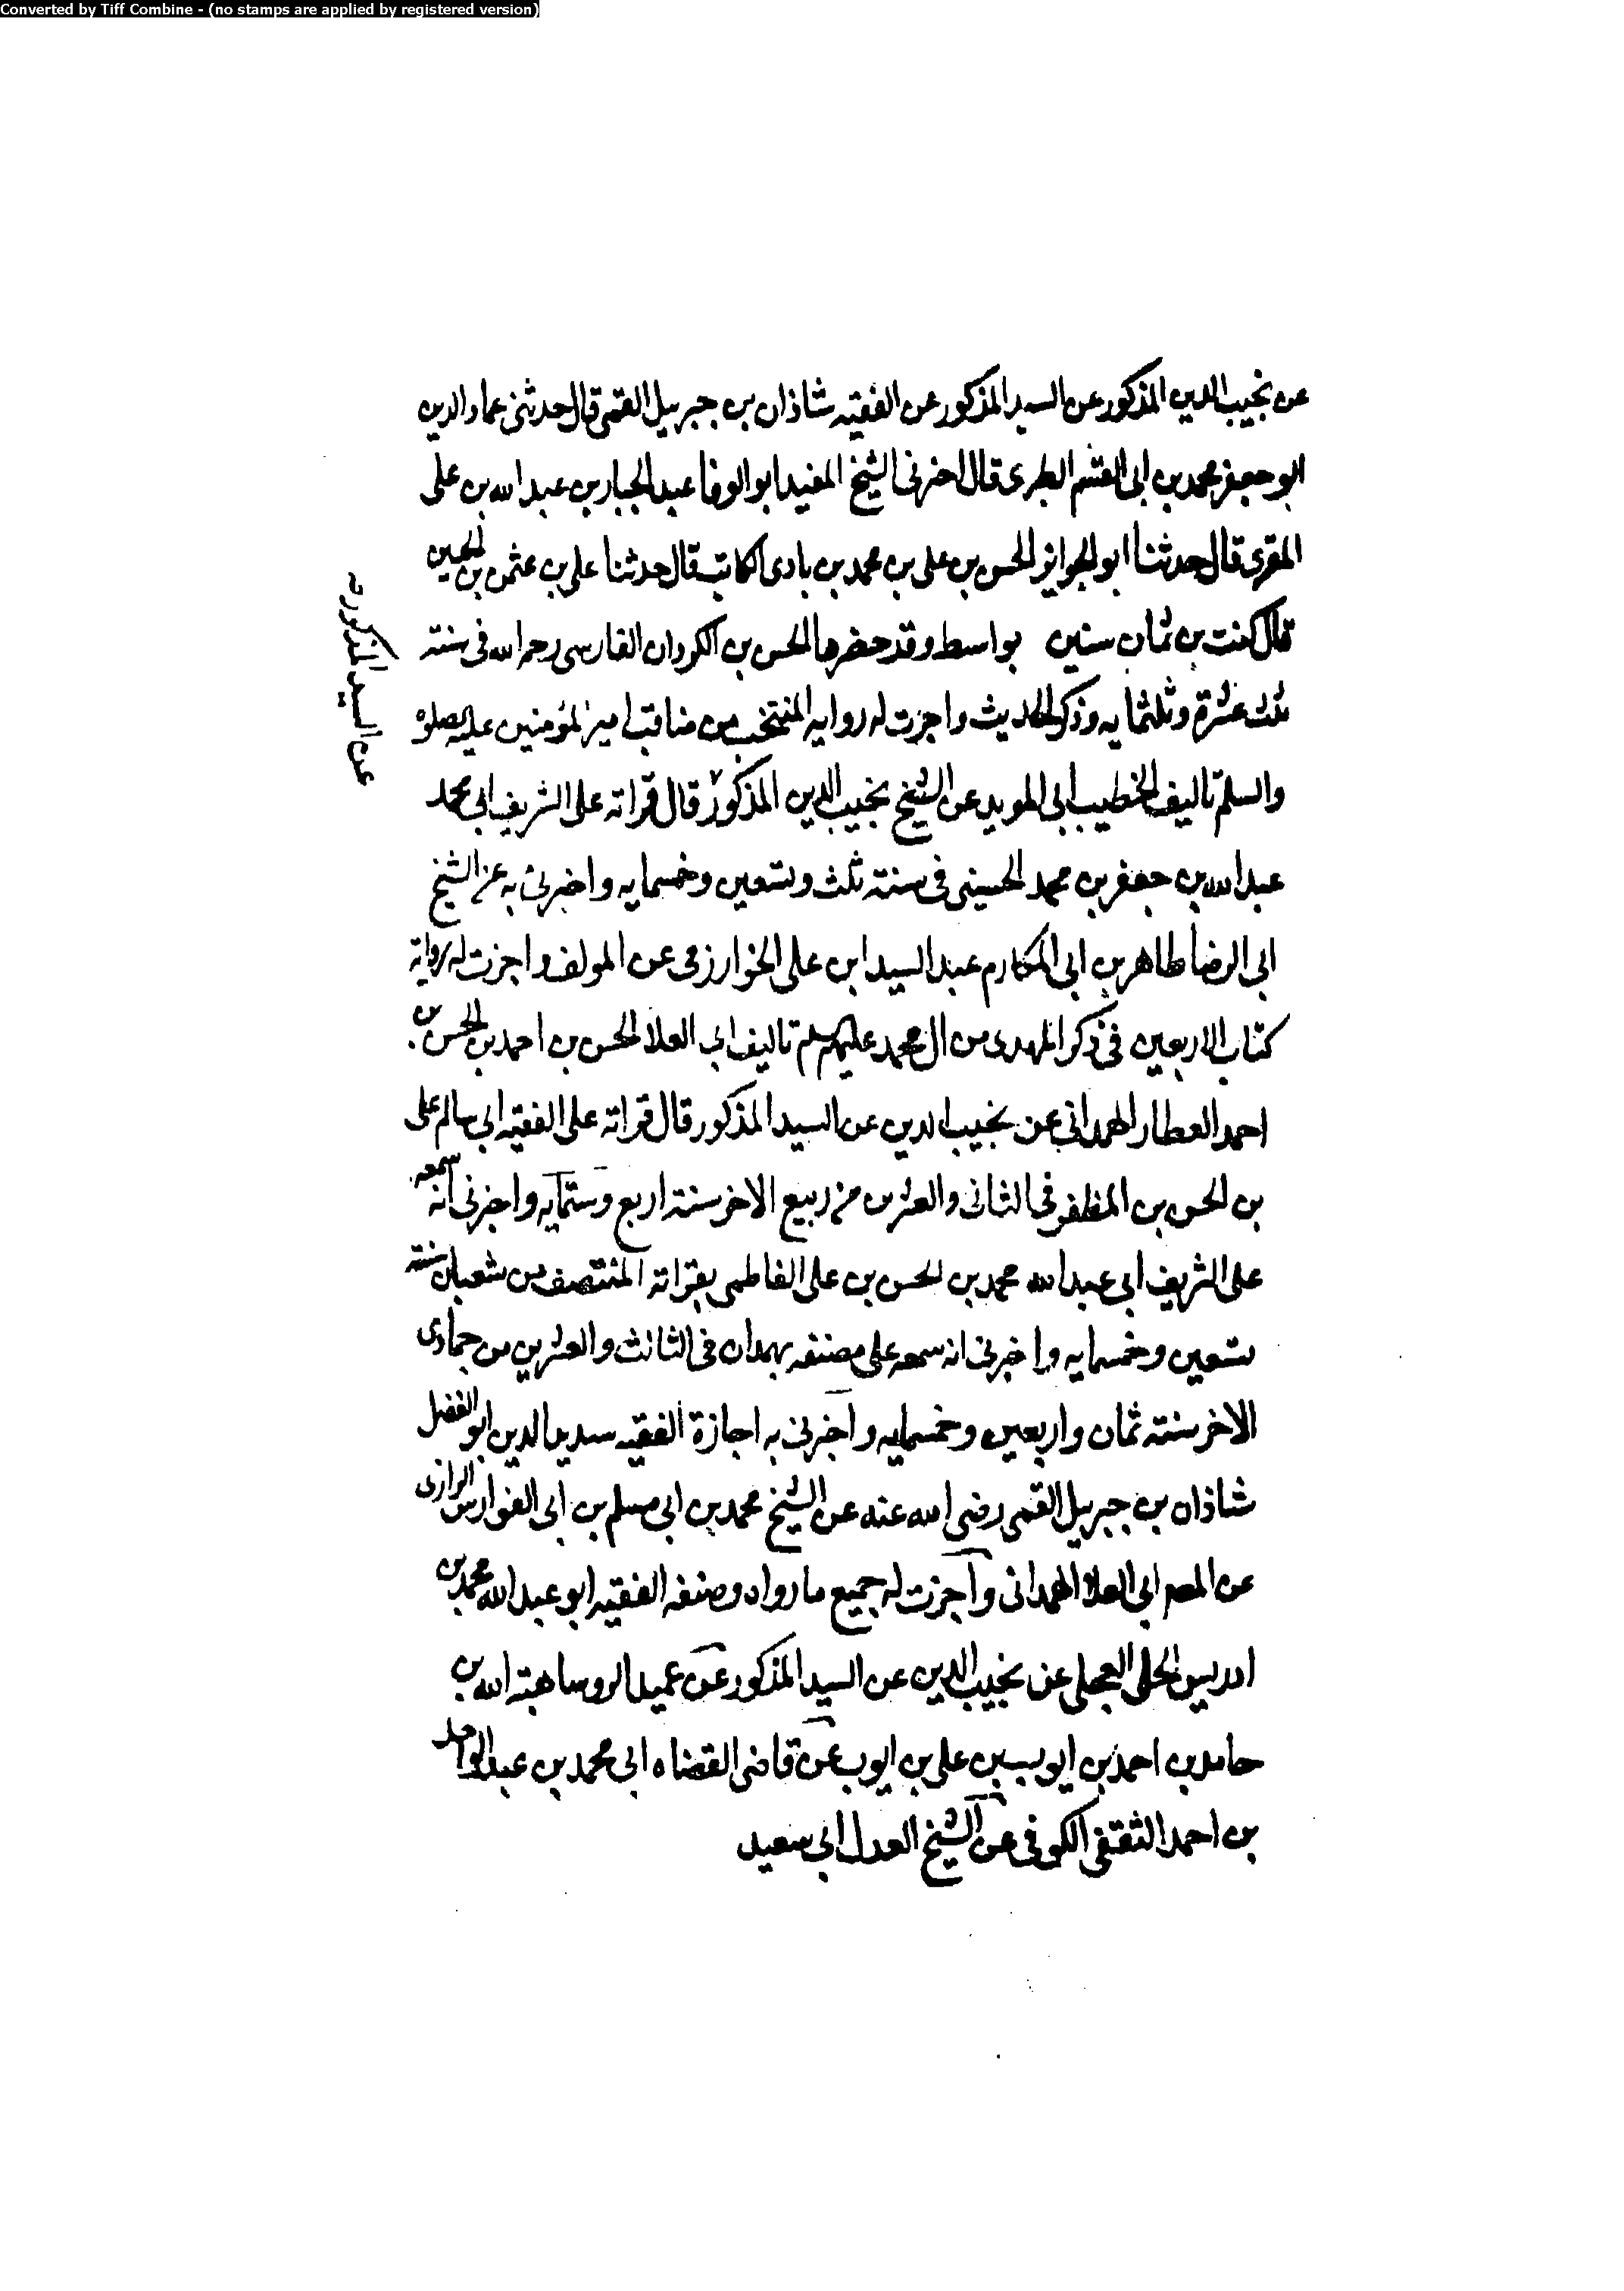 Converted by Tiff Combine - (no stamps are applied by registered version)
عن نجيب الدين المذكور عن السيد المذكور عن الفقيه شاذان بن جبرييل القمى قال حدثنى عماد الدين
ابو جعفر محمد بن ابى القسم الطبرى قال اخبرنى الشيخ المفيد ابو الوفا عبد الجبار بن عبد الله بن على
المقرى قال حدثنا ابو الجوايز الحسن بن على بن محمد بن بادى الكاتب قال حدثنا على بن عثمن بن الحسين
قال كنت بن ثمان سنين بواسط وقد حضرها الحسن بن الكردان الفارسى رحمه الله فى سنته
ثلث عشرة وثلثمايه وذكر الحديث واجزت له روايه المنتخب من مناقب امير المؤمنين عليه الصلوه
والسلم تاليف الخطيب ابى المويد عن الشيخ نجيب الدين المذكور قال قراته على الشريف ابى محمد
عن السيد المذكور
عبد الله بن جعفر بن محمد الحسينى فى سنته ثلث وتسعين وخمسمايه واخبرنى به عن الشيخ
ابى الرضا طاهر بن ابى المكارم عبد السيد ابن على الخوارزمى عن المولف واجزت له رواية
كتاب الاربعين فى ذكر المهدى من ال محمد عليهم سلم تاليف ابى العلا الحسن بن احمد بن الحسن بن
احمد العطار الهمدانى عن نجيب الدين عن السيد المذكور قال قراته على الفقيه ابى سالم على
بن الحسن بن المظفر فى الثانى والعشرين من ربيع الاخر سنته اربع وستمايه واخبرنى انه سمعه
على الشريف ابى عبد الله محمد بن الحسن بن على الفاطمى بقراته المنتصف من شعبان سنته
تسعين وخمسمايه واخبرنى انه سمعه على مصنفه بهمدان فى الثالث والعشرين من جمادى
الاخر سنته ثمان واربعين وخمسمايه واخبرنى به اجازة الفقيه سديد الدين ابو الفضل
شاذان بن جبرييل القمى رضى الله عنه عن الشيخ محمد بن ابى مسلم بن ابى الفوارس الرازى
عن المصم ابى العلا الهمدانى واجزت له جميع ما رواه وصنفه الفقيه ابو عبد الله محمد بن
ادريس الحلى العجلى عن نجيب الدين عن السيد المذكور عن عميد الروسا هبته الله بن
حامد بن احمد بن ايوب بن على بن ايوب عن قاضى القضاه ابى محمد بن عبد الواحد
بن احمد الثقفى الكوفى عن الشيخ العدل ابى سعيد